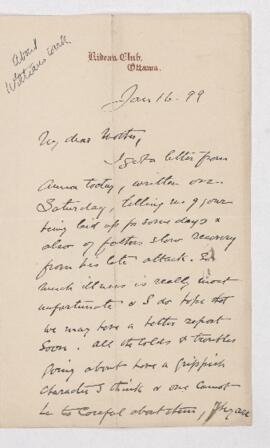 About
William's work
Rideau Club,
Ottawa.
Jan 16. 99
My dear Mother,
I got a letter from
Emma today, written on
Saturday, telling me of your
being laid up for some days &
also of father's slow recovery
from his late attack. So
much illness is really most
unfortunate & I do hope that
we may have a better report
soon. All the colds & troubles
going about have a grippish
character I think & one cannot
be too careful about them,